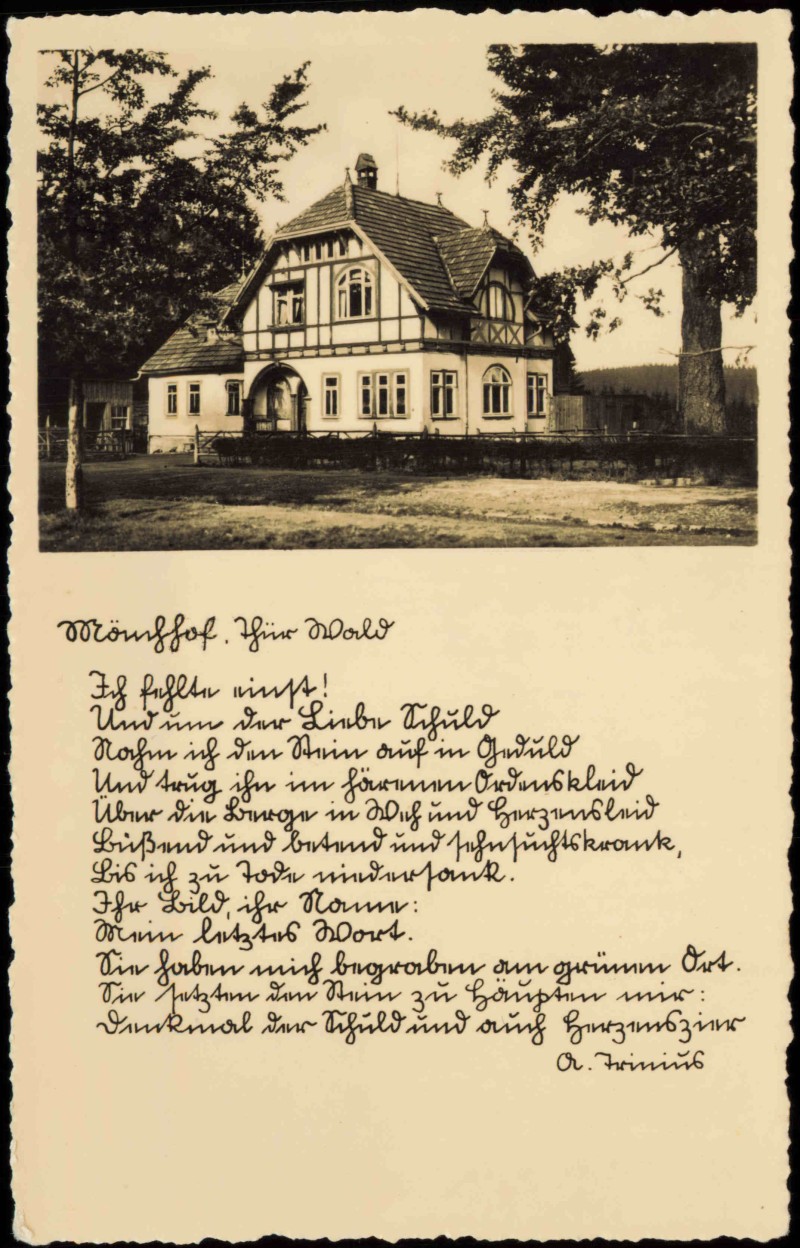 Mönchhof. Thür Wald
Ich fehlte einst!
Und um der Liebe Schuld
Nahm ich den Stein auf in Geduld
Und trug ihn im härenen Ordenskleid
Über die Berge in Weh und Herzensleid
Büßend und betend und sehnsuchtskrank,
Bis ich zu Tode niedersank.
Ihr Bild, ihr Name:
Mein letztes Wort.
Sie haben mich begraben am grünen Ort.
Sie setzten den Stein zu Häupten mir:
Denkmal der Schuld und auch Herzenszier
A. Trinius